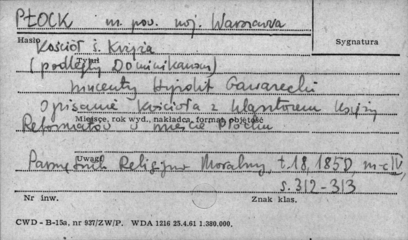 PŁOCK m. pow. woj. Warszawa
Hasło
Kościół ś. Krzyża
Sygnatura
(podległy Dominikanom)
Tytuł
Wincenty Hipolit Gawarecki
Opisanie Kościoła z klasztorem Księży
Reformatów w mieście Płocku
Miejsce, rok wyd., nakładca, format, objętość
Pamiętnik Religijno Moralny, t. 18, 1850, nr IV,
Uwagi
s. 312-313
Nr inw.
Znak klas.
CWD - B-15a, nr 937/ZW/P. WDA 1216 25.4.61 1.380.000.